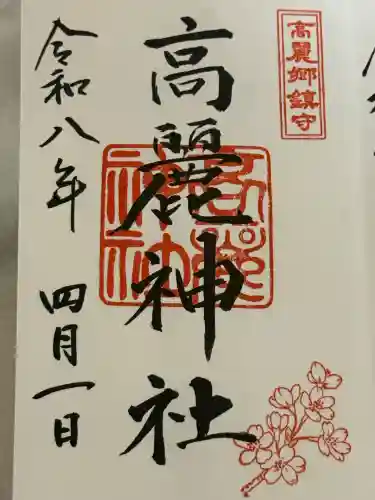 高麗郷鎮守
高麗神社
令和八年 四月一日
高麗神社